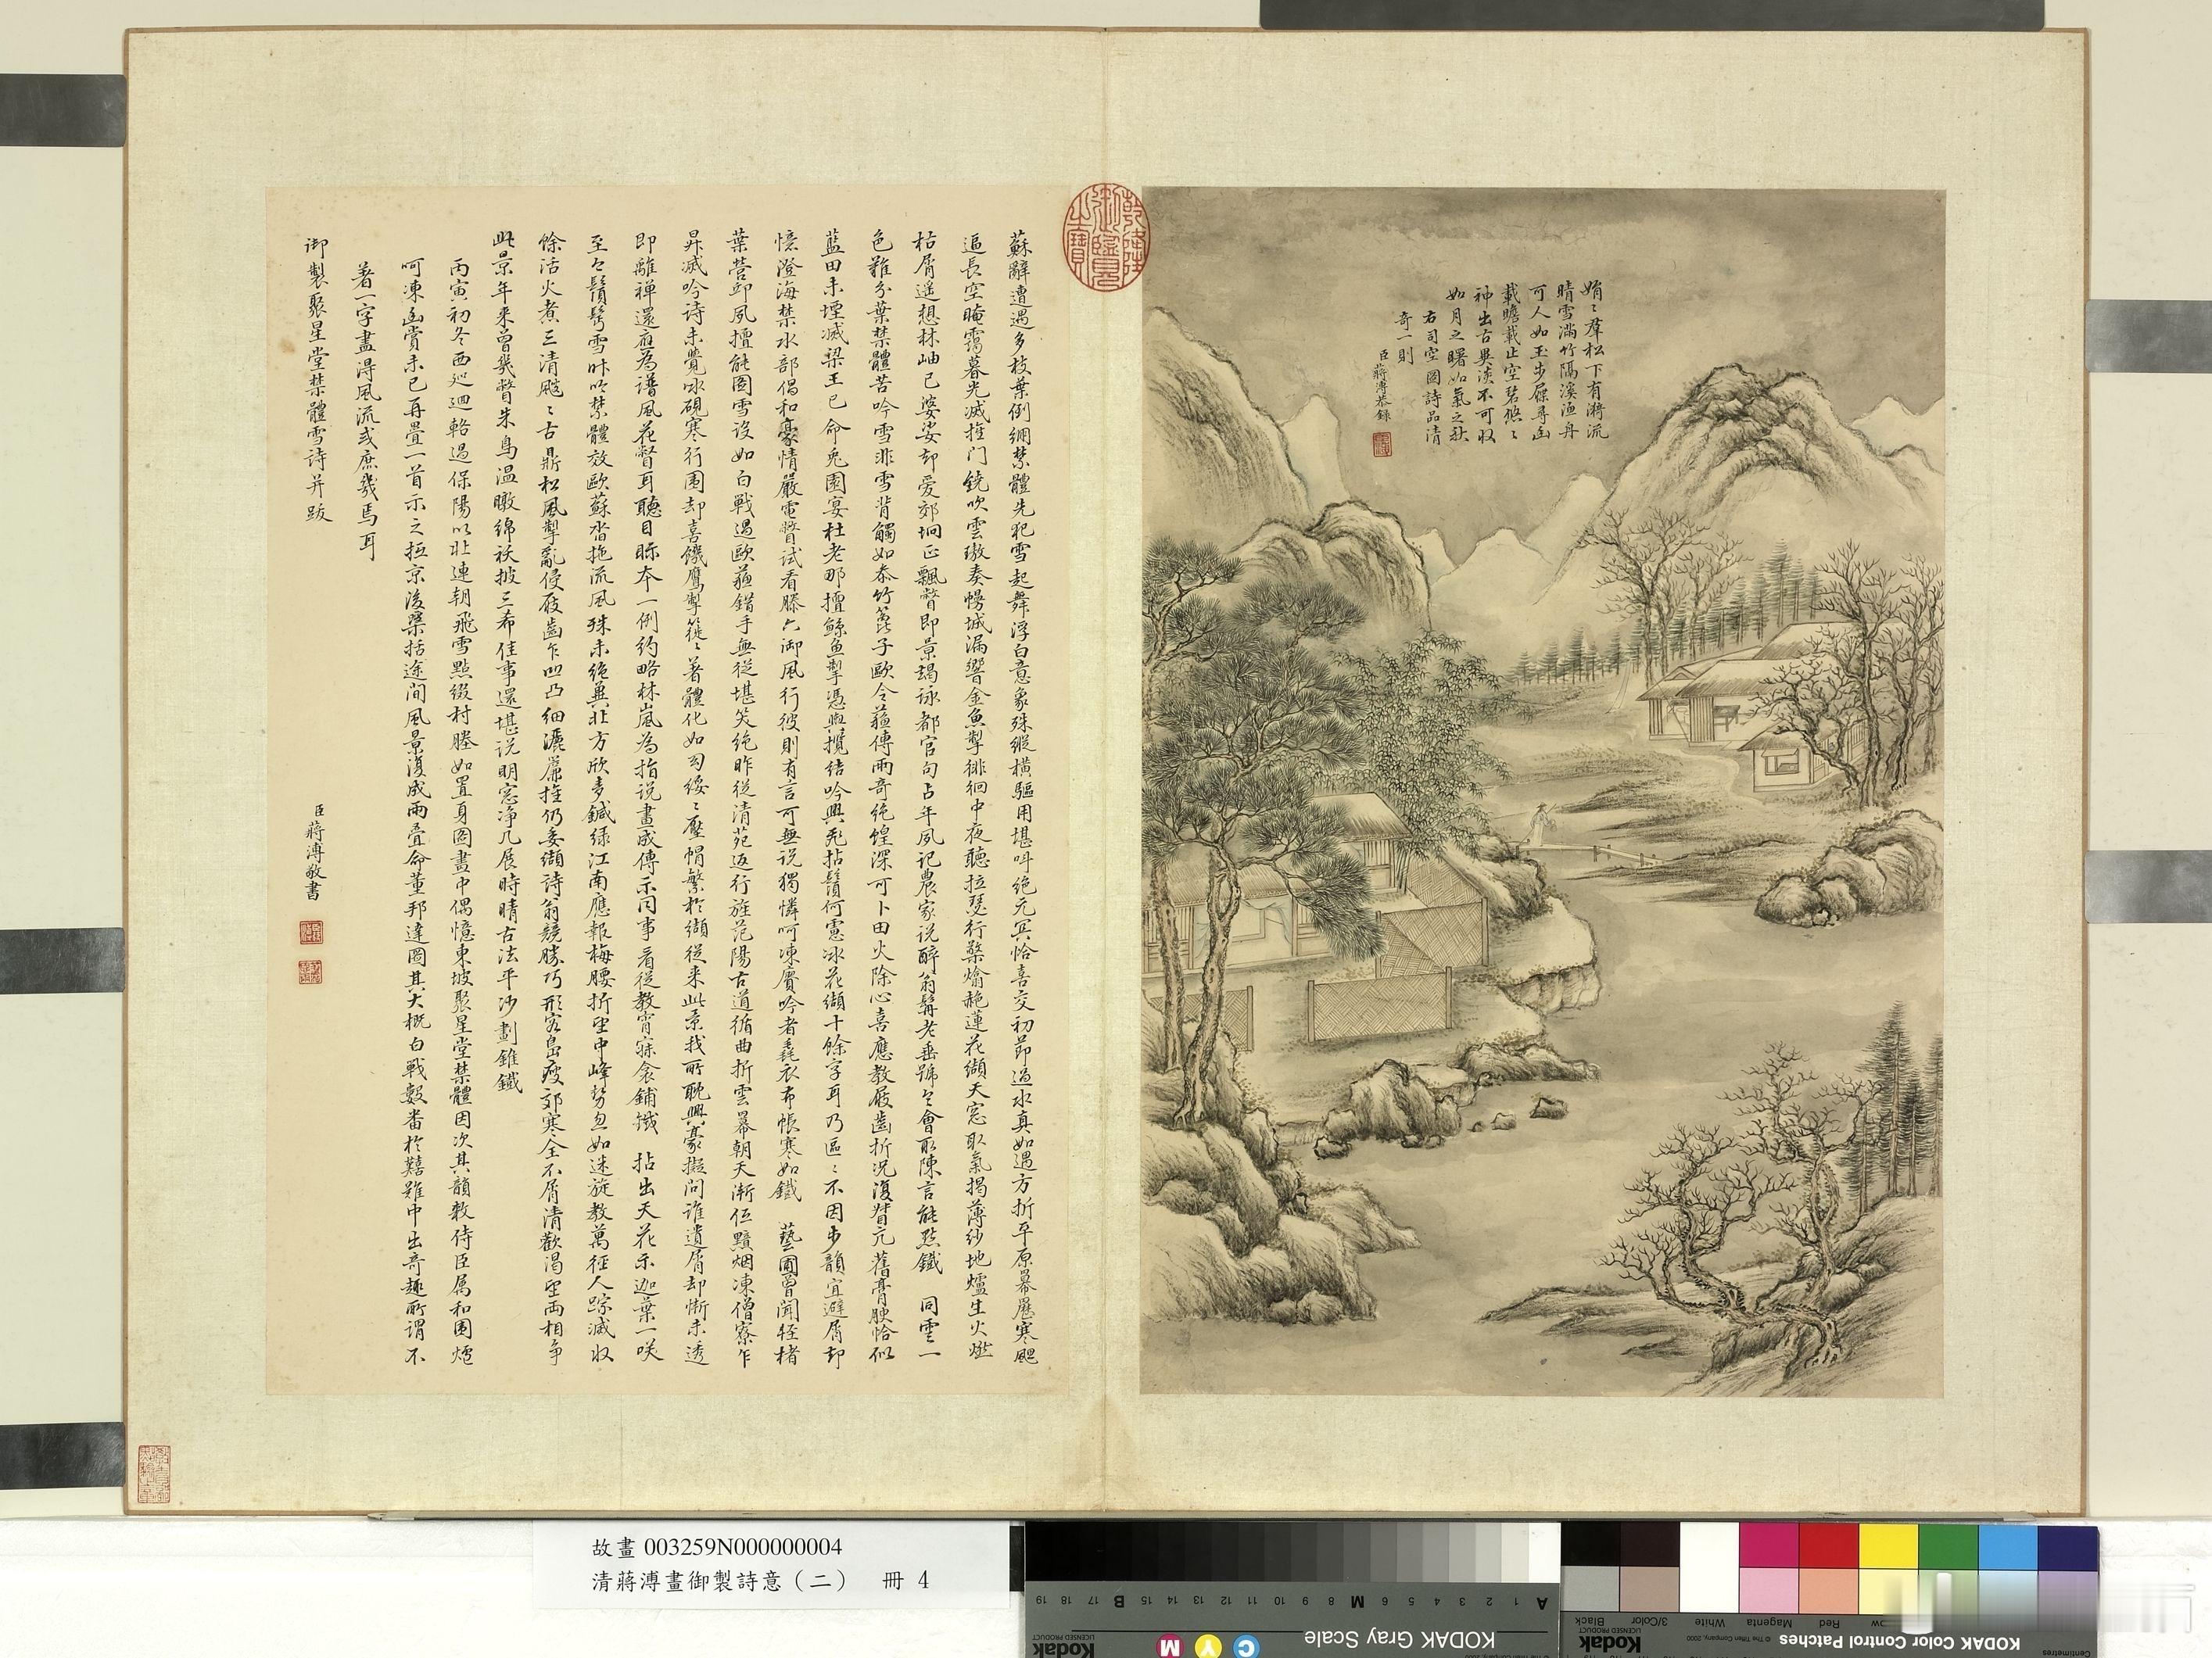 娟〻羣松下有漪流
晴雪滿竹隔溪漁舟
可人如玉步屧尋幽
載瞻載止空碧悠〻
神出古異淡不可収
如月之曙如氣之秋
右司空圖詩品清
奇一則
臣蔣溥恭錄
乾隆御覽之寶
蘇辭遭遇多枝葉例綳禁體先犯雪起舞浮白意象殊縱橫驅用堪叫絶元冥恰喜交初節過水真如遇方折平原羃歷寒颸
逼長空晻靄暮光滅推門鐃吹雲璈奏幔城漏響金魚掣徘徊中夜聽拉瑟行檠爚艴蓮花纈天窓取氣揭薄紗地爐生火燃
枯屑遥想林岫已婆娑却愛郊坰正飄瞥即景朅詠都官句占年夙記農家説醉翁髯老垂號令會取陳言能點鐵 同雲一
色難分葉禁體苦吟雪非雪背觸如叅竹篦子歐令蘇傳兩奇絶蝗深可卜田火除心喜應教屐齒折況復督亢舊膏腴恰似
藍田未堙滅梁王已命兎園宴杜老那擅鯨魚掣憑輿攬結吟興飛拈鬚何慮冰花纈十餘字耳乃區〻不因步韻宜避屑却
憶澄海禁水部倡和豪情嚴電瞥試看滕六御風行彼則有言可無説獨憐呵凍賡吟者毳衣布帳寒如鐵 藝圃曽聞輊楮
葉營邱夙擅能圖雪設如白戰過歐蘇錯手無從堪笑絶昨從清苑返行旌范陽古道循曲折雲幕朝天漸低黯烟凍僧寮乍
昇滅吟詩未覺冰硯寒行圍却喜饑鷹掣簁〻著體化如勻綏〻壓帽繁於纈從来此景我所耽興豪擬問誰遺屑却慚未透
即離禪還應為譜風花瞥耳聽目眎本一例約略林嵐為指説畫成傳示同事看從教宵寐衾鋪鐵 拈出天花示迦葉一咲
至今鬚髩雪咔吟禁體效歐蘇沓拖流風殊未絶兾北方欣麥鍼绿江南應報梅腰折望中峰勢忽如迷旋教萬徑人踪滅収
餘活火煮三清颼〻古鼎松風掣亂侵屐齒乍凹凸細灑簾推仍委纈詩翁競勝巧形容島瘦郊寒全不屑清歡渴望兩相争
此景年来曽幾瞥朱鳥温暾綿袄披三希佳事還堪説明窓净几展時晴古法平沙劃錐鐵
丙寅初冬西廵迴輅過保陽以北連朝飛雪點綴村塍如置身圖畫中偶憶東坡聚星堂禁體因次其韻敕侍臣属和圍爐
呵凍函賞未已再疊一首示之抵京後檃括途間風景復成兩疊命董邦達圖其大概白戰數番於囏難中出奇趣所谓不
著一字盡得風流或庶幾焉耳
御製聚星堂禁體雪诗并跋
臣蔣溥敬書
故畫 003259N000000004
清蔣溥畫御製詩意（二） 冊 4
KODAK Gray Scale
Kodak
LICENSED PRODUCT
C
Y
M
A 1 2 3 4 5 6 7 8 M 9 10 11 12 13 14 15 B 17 18 19
KODAK Color Control Patches
Kodak
LICENSED PRODUCT
© The Tiffen Company, 2000
Centimetres
Red
Magenta
White
3/Color
Black